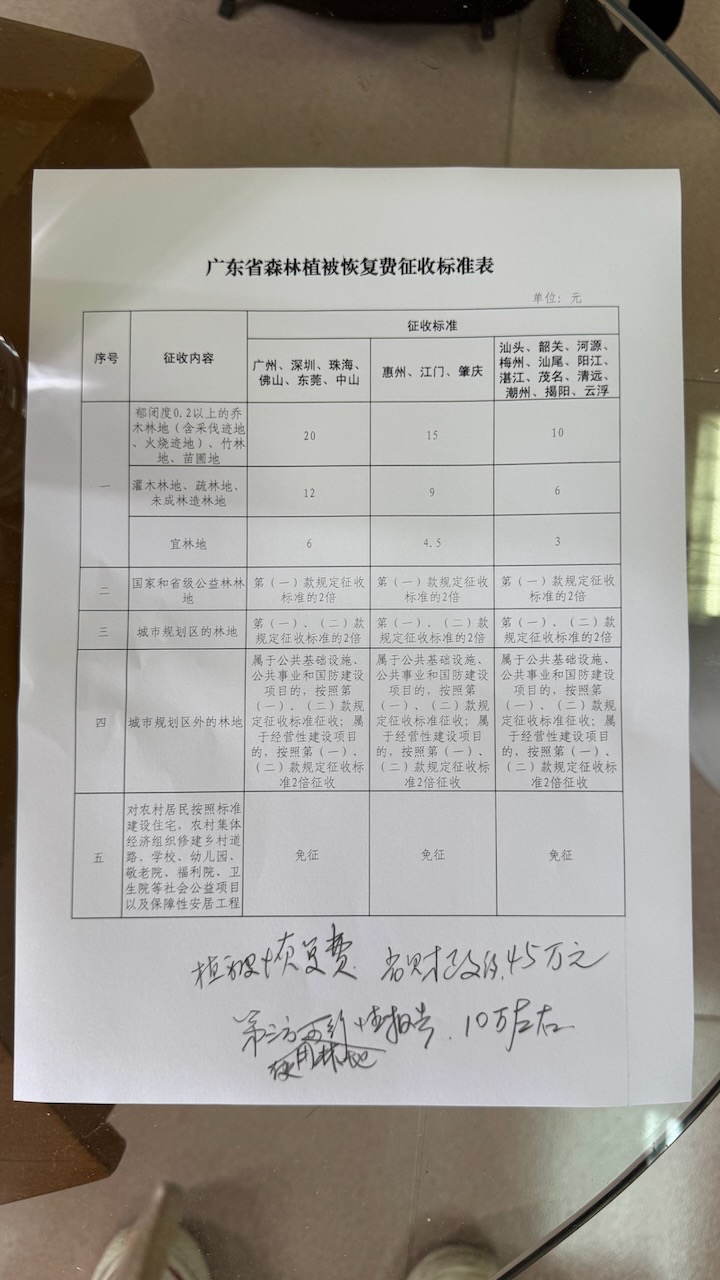 广东省森林植被恢复费征收标准表
单位：元
序号
征收内容
征收标准
广州、深圳、珠海、
佛山、东莞、中山
惠州、江门、肇庆
汕头、韶关、河源、
梅州、汕尾、阳江、
湛江、茂名、清远、
潮州、揭阳、云浮
一
郁闭度0.2以上的乔
木林地（含采伐迹地
、火烧迹地）、竹林
地、苗圃地
20
15
10
灌木林地、疏林地、
未成林造林地
12
9
6
宜林地
6
4.5
3
二
国家和省级公益林林
地
第（一）款规定征收
标准的2倍
第（一）款规定征收
标准的2倍
第（一）款规定征收
标准的2倍
三
城市规划区的林地
第（一）、（二）款
规定征收标准的2倍
第（一）、（二）款
规定征收标准的2倍
第（一）、（二）款
规定征收标准的2倍
四
城市规划区外的林地
属于公共基础设施、
公共事业和国防建设
项目的，按照第
（一）、（二）款规
定征收标准征收；属
于经营性建设项目
的，按照第（一）、
（二）款规定征收标
准2倍征收
属于公共基础设施、
公共事业和国防建设
项目的，按照第
（一）、（二）款规
定征收标准征收；属
于经营性建设项目
的，按照第（一）、
（二）款规定征收标
准2倍征收
属于公共基础设施、
公共事业和国防建设
项目的，按照第
（一）、（二）款规
定征收标准征收；属
于经营性建设项目
的，按照第（一）、
（二）款规定征收标
准2倍征收
五
对农村居民按照标准
建设住宅，农村集体
经济组织修建乡村道
路、学校、幼儿园、
敬老院、福利院、卫
生院等社会公益项目
以及保障性安居工程
免征
免征
免征
植被恢复费 省财政 45万元
第三方可行性报告 10万左右
使用林地